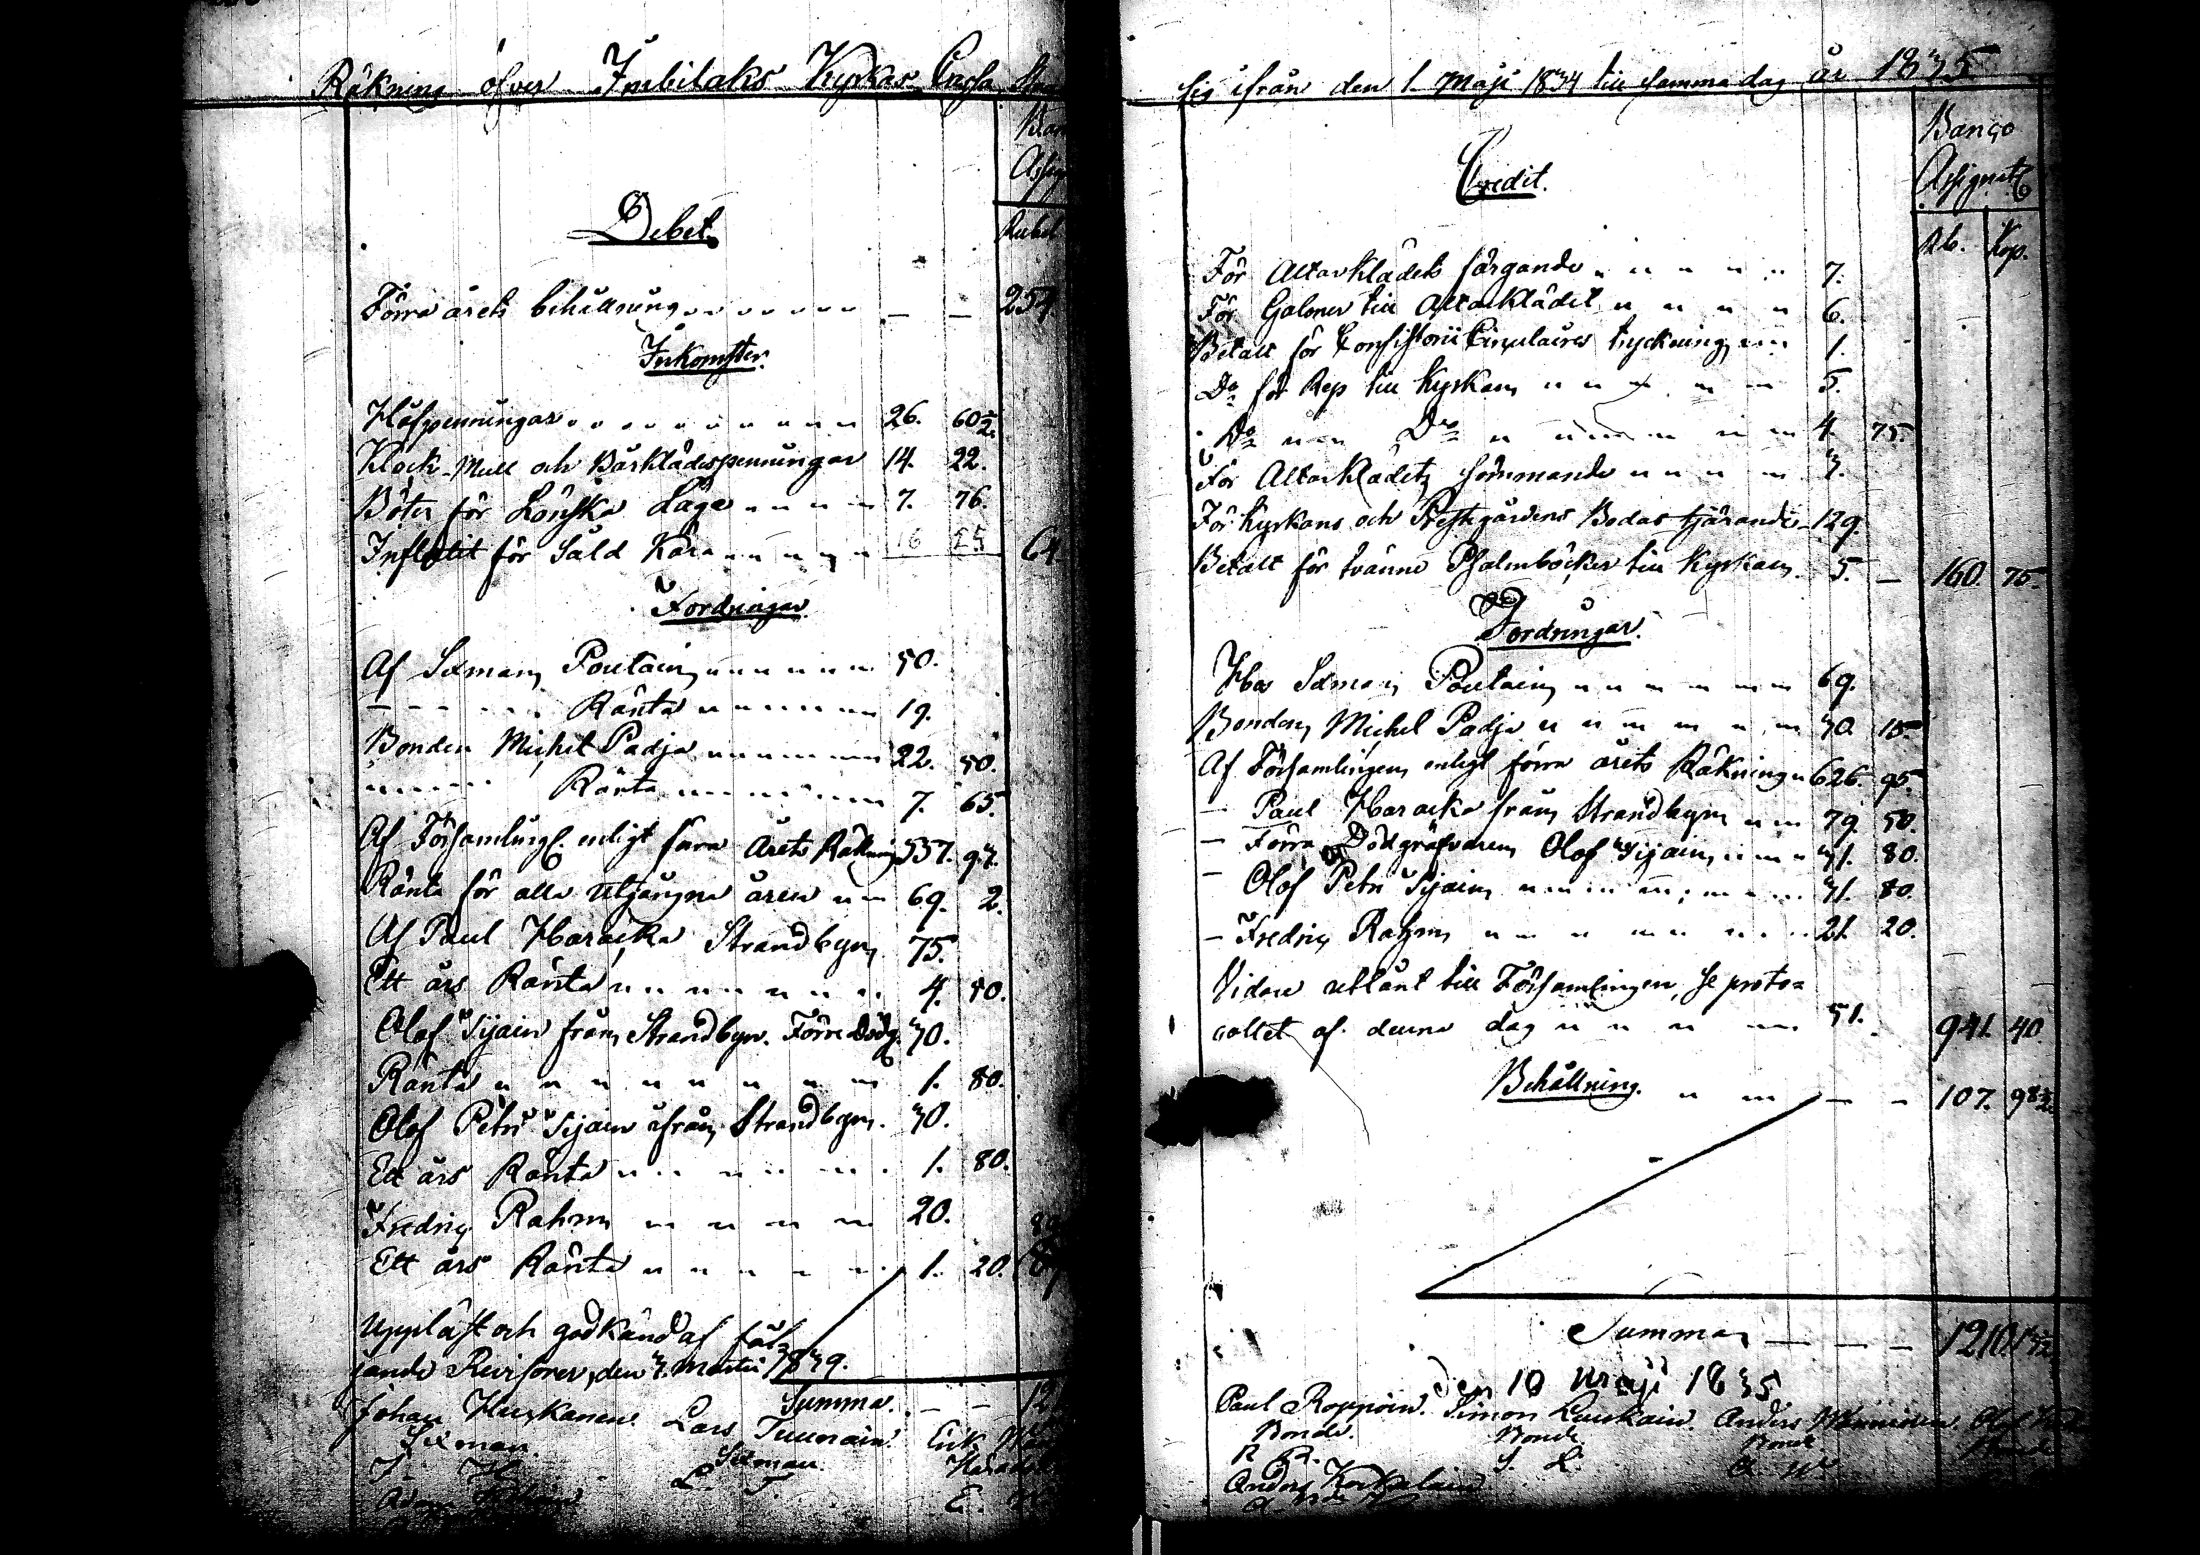 Räkning öfver Imbilaks Kyrkas Cassa
Banco
Debet.
Rubel
Förra årets behållning - - 254.
Inkomster.
Håfpenningar 26. 60½
Klock-Mull och Bårklädespenningar 14. 22.
Böter för Lönska Läge 7. 76.
Influtit för Såld Kära 16 25 64
Fordringar.
Af Sexman Poutain 50.
Ränta 19.
Bonden Michel Padja 22. 50.
Ränta 7. 65.
Af Församlingl. enligt förra Årets Räkning 537. 97.
Ränta för alla utgångna åren 69. 2.
Af Paul Haracka Strandbyn 75.
Ett års Ränta 4. 50.
Olof Sijain från Strandbyn. Förre Dödg. 70.
Ränta 1. 80.
Olof Petri Sijain ifrån Strandbyn. 70.
Ett års Ränta 1. 80.
Fredric Rahm 20.
Ett års Ränta 1. 20.
Uppläst och godkänd af föl=
jande Revisorer, den 7. Martii 1839.
Summa. - - 12
Johan Huskanen. Lars Tuunain. Erik
Sexman. Sexman.
J. H. L. T. E.
sig ifrån den 1 Maji 1834 till samma dag år 1835
Banco
Assignat
Credit.
Rb. Kop.
För Altarklädets färgande 7.
För Galoner till Altarklädet 6.
Betalt för Consistorii Circulairers tryckning 1.
Do för Rep till Kyrkan 5.
Do Do 4. 75.
För Altarklädets sömmande 3.
För Kyrkans och Prestgårdens Bodas tjärande 129.
Betalt för tvänne Psalmböcker till Kyrkan. 5. - 160. 75.
Fordringar.
Hos Sexman Poutain 69.
Bonden Michel Padja 30 15
Af Församlingen enligt förra årets Räkning 626. 95.
- Paul Haracka från Strandbyn 79. 50.
- Förra Dödgräfvaren Olof Sijain 71. 80.
- Olof Petri Sijain 71. 80.
- Fredric Rahm 21. 20.
Vidare utlånt till Församlingen, se proto=
collet af denna dag 51. 941. 40
Behållning. - - 107. 98½
Summa - - - 1210. 13½
Den 10 Maji 1835
Paul Roppoin. Simon Laukain. Anders Olof
Bonde. Bonde Bonde. Bonde
P. R. S. L. A W
Anders Korkalain